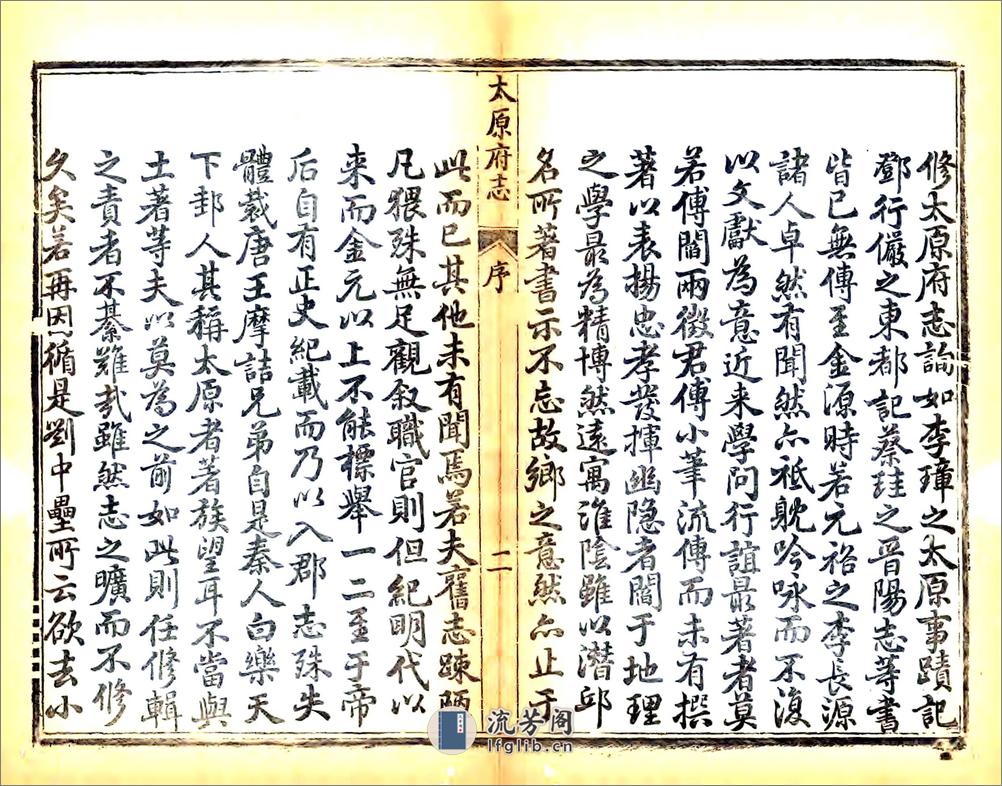 修太原府志論如李璋之太原事蹟記
鄧行儼之東都記蔡珪之晋陽志等書
皆已無傳至金源時若元裕之李長源
諸人卓然有聞然亦祇躭吟咏而不復
以文獻為意近来學問行誼最著者莫
若傅閻兩徵君傅小筆流傳而未有撰
著以表揚忠孝發揮幽隐者閻于地理
之學最為精博然遠寓淮陰雖以潜邱
名所著書示不忘故鄉之意然亦止于
太原府志
序
二
此而已其他未有聞焉若夫舊志踈陋
凡猥殊無足觀叙職官則但紀明代以
来而金元以上不能標舉一二至于帝
后自有正史紀載而乃以入郡志殊失
體裁唐王摩詰兄弟自是秦人白樂天
下邽人其稱太原者著族望耳不當與
土著等夫以莫為之前如此則任修輯
之責者不綦難哉雖然志之曠而不修
久矣若再因循是劉中壘所云欲去小
流芳阁
lfglib.cn